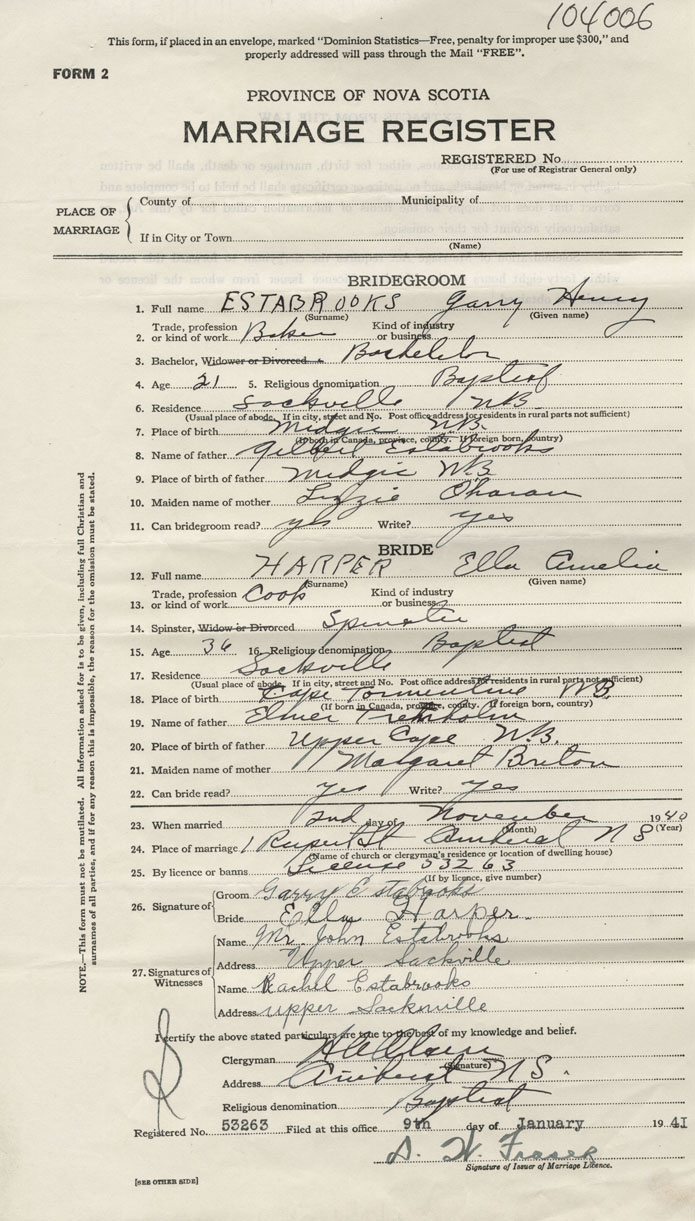 104006
This form, if placed in an envelope, marked "Dominion Statistics—Free, penalty for improper use $300," and
properly addressed will pass through the Mail "FREE".
FORM 2
PROVINCE OF NOVA SCOTIA
MARRIAGE REGISTER
REGISTERED No.
(For use of Registrar General only)
PLACE OF MARRIAGE
County of Municipality of
If in City or Town
(Name)
BRIDEGROOM
1. Full name ESTABROOKS Garry Henry
(Surname) (Given name)
2. Trade, profession or kind of work Baker Kind of industry or business
3. Bachelor, Widower or Divorced Bachelor
4. Age 21 5. Religious denomination Baptist
6. Residence Sackville NB
(Usual place of abode. If in city, street and No. Post office address for residents in rural parts not sufficient)
7. Place of birth Midgic NB.
(If born in Canada, province, county. If foreign born, country)
8. Name of father Gilbert Estabrooks
9. Place of birth of father Midgic N.B.
10. Maiden name of mother Lizzie
11. Can bridegroom read? yes Write? yes
BRIDE
12. Full name HARPER Ella Amelia
(Surname) (Given name)
13. Trade, profession or kind of work Cook Kind of industry or business
14. Spinster, Widow or Divorced Spinster
15. Age 36 16. Religious denomination Baptist
17. Residence Sackville
(Usual place of abode. If in city, street and No. Post office address for residents in rural parts not sufficient)
18. Place of birth Cape Tormentine NB.
(If born in Canada, province, county. If foreign born, country)
19. Name of father Elmer Trenholm
20. Place of birth of father Upper Cape N.B.
21. Maiden name of mother Margaret Breton
22. Can bride read? yes Write? yes
23. When married 2nd day of November 1940
(Month) (Year)
24. Place of marriage 1 Rupert St Amherst N S
(Name of church or clergyman's residence or location of dwelling house)
25. By licence or banns License 53263
(If by licence, give number)
26. Signature of
Groom Garry Estabrooks
Bride Ella Harper.
27. Signatures of Witnesses
Name Mr. John Estabrooks
Address Upper Sackville
Name Rachel Estabrooks
Address upper Sackville
I certify the above stated particulars are true to the best of my knowledge and belief.
Clergyman
(Signature)
Address Amherst N S.
Religious denomination Baptist
Registered No. 53263 Filed at this office 9th day of January 1941
Signature of Issuer of Marriage Licence.
[SEE OTHER SIDE]
NOTE.—This form must not be mutilated. All information asked for is to be given, including full Christian and
surnames of all parties, and if for any reason this is impossible, the reason for the omission must be stated.